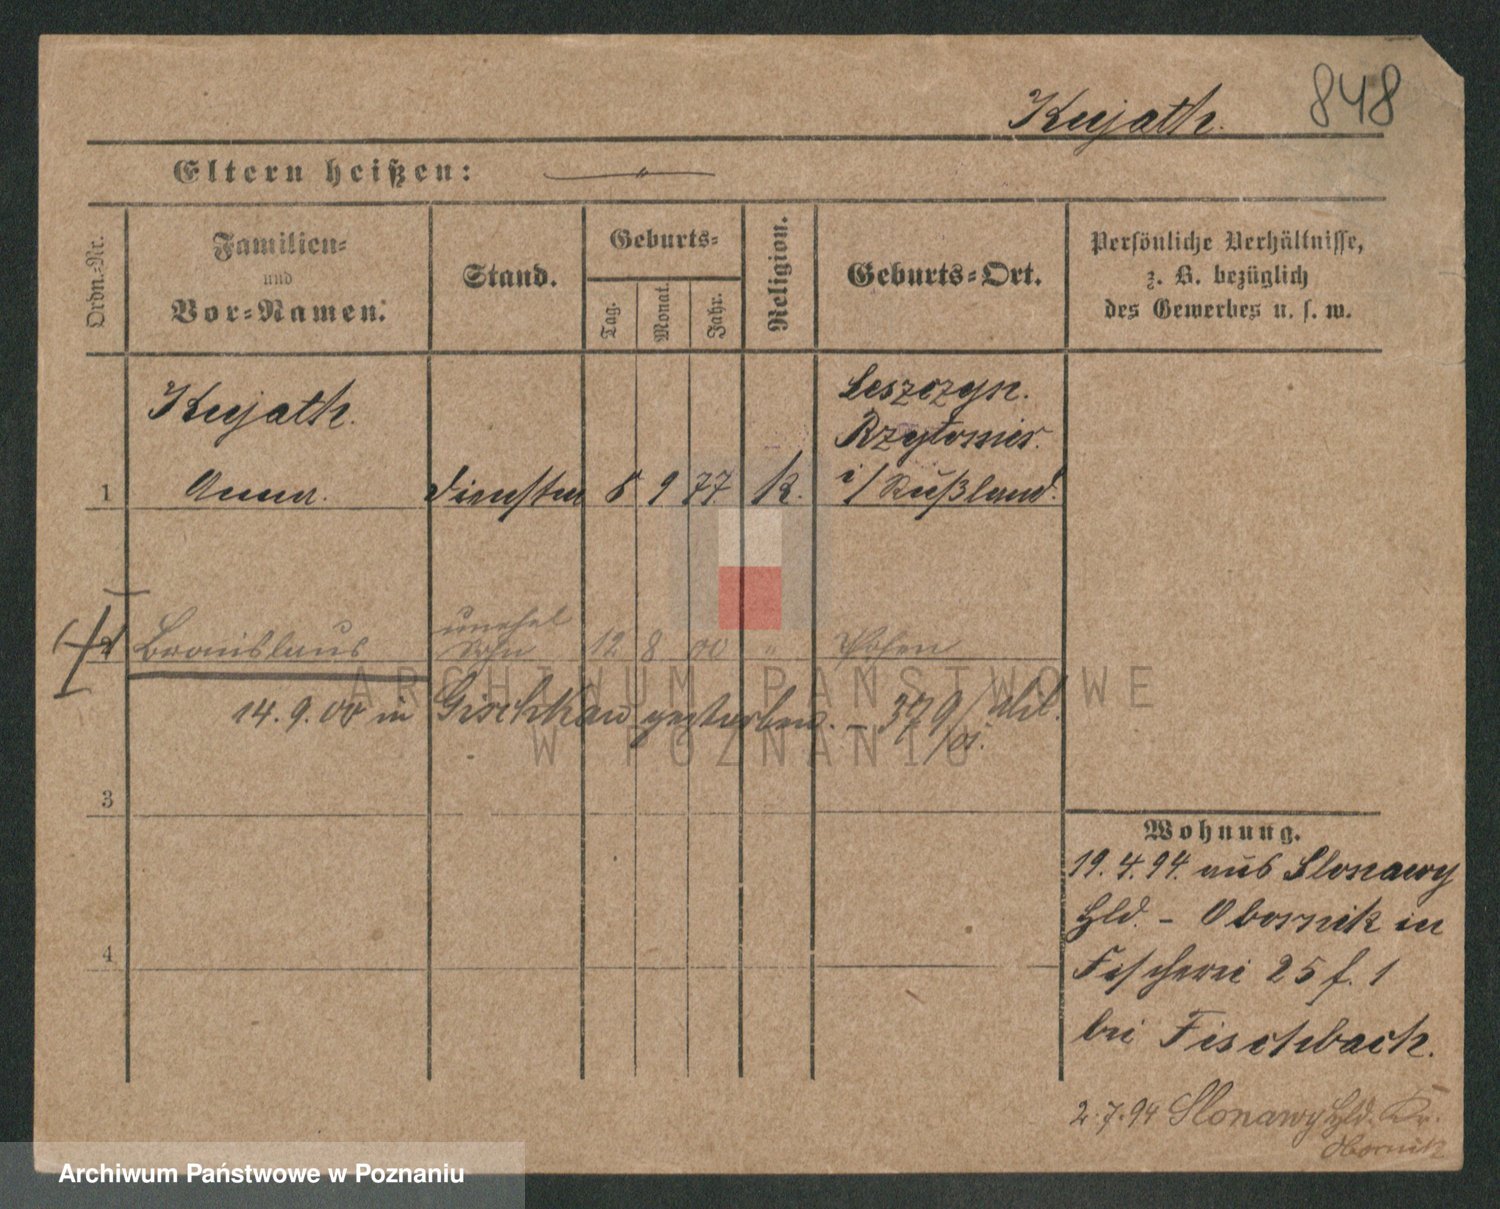 848
Kujath.
Eltern heißen: — " —
Ordn.-Nr.
Familien- und Vor-Namen.
Stand.
Geburts-
Tag. Monat. Jahr.
Religion.
Geburts-Ort.
Persönliche Verhältnisse,
z. B. bezüglich
des Gewerbes u. s. w.
Kujath.
Leszczyn.
Rzytomir.
1 Anna. 8 9 77 K. i/Rußland.
unehel
2 Bronislaus Sohn 12 8 00 " Posen
14.9.00 in Gischkau gestorben. — 379/01.
ARCHIWUM PAŃSTWOWE
W POZNANIU
3
4
Wohnung.
19.4.94. aus Slonawy
Hld. - Obornik in
Fischerei 25 f. 1
bei Fischbach.
2.7.94 Slonawy Hld. Kr.
Obornik
Archiwum Państwowe w Poznaniu